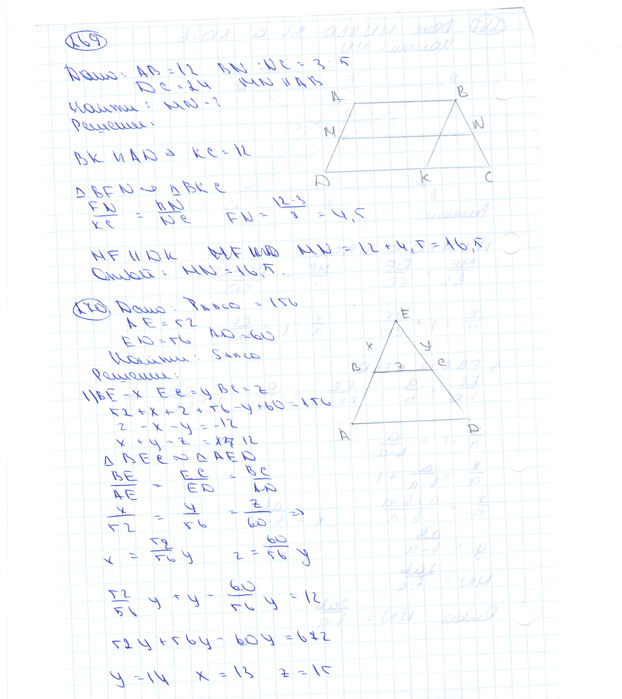 269
Дано: AB = 12 BN : NC = 3 : 5
DC = 24 MN || AB
Найти: MN - ?
Решение:
A B
M N
D K C
BK || AD ⇒ KC = 12
△BFN ∾ △BKC
FN/KC = BN/NC FN = 12·3/8 = 4,5
MF || DK MN = 12 + 4,5 = 16,5
Ответ: MN = 16,5.
270 Дано: PABCD = 156
AE = 52
ED = 56 AD = 60
Найти: SABCD
Решение:
E
x y
B z C
A D
1) BE - x EC = y BC = z
52 + x + z + 56 - y + 60 = 156
z - x - y = -12
x + y - z = 12
△BEC ∾ △AED
BE/AE = EC/ED = BC/AD
x/52 = y/56 = z/60 ⇒
x = 52/56 y z = 60/56 y
52/56 y + y - 60/56 y = 12
52y + 56y - 60y = 672
y = 14 x = 13 z = 15